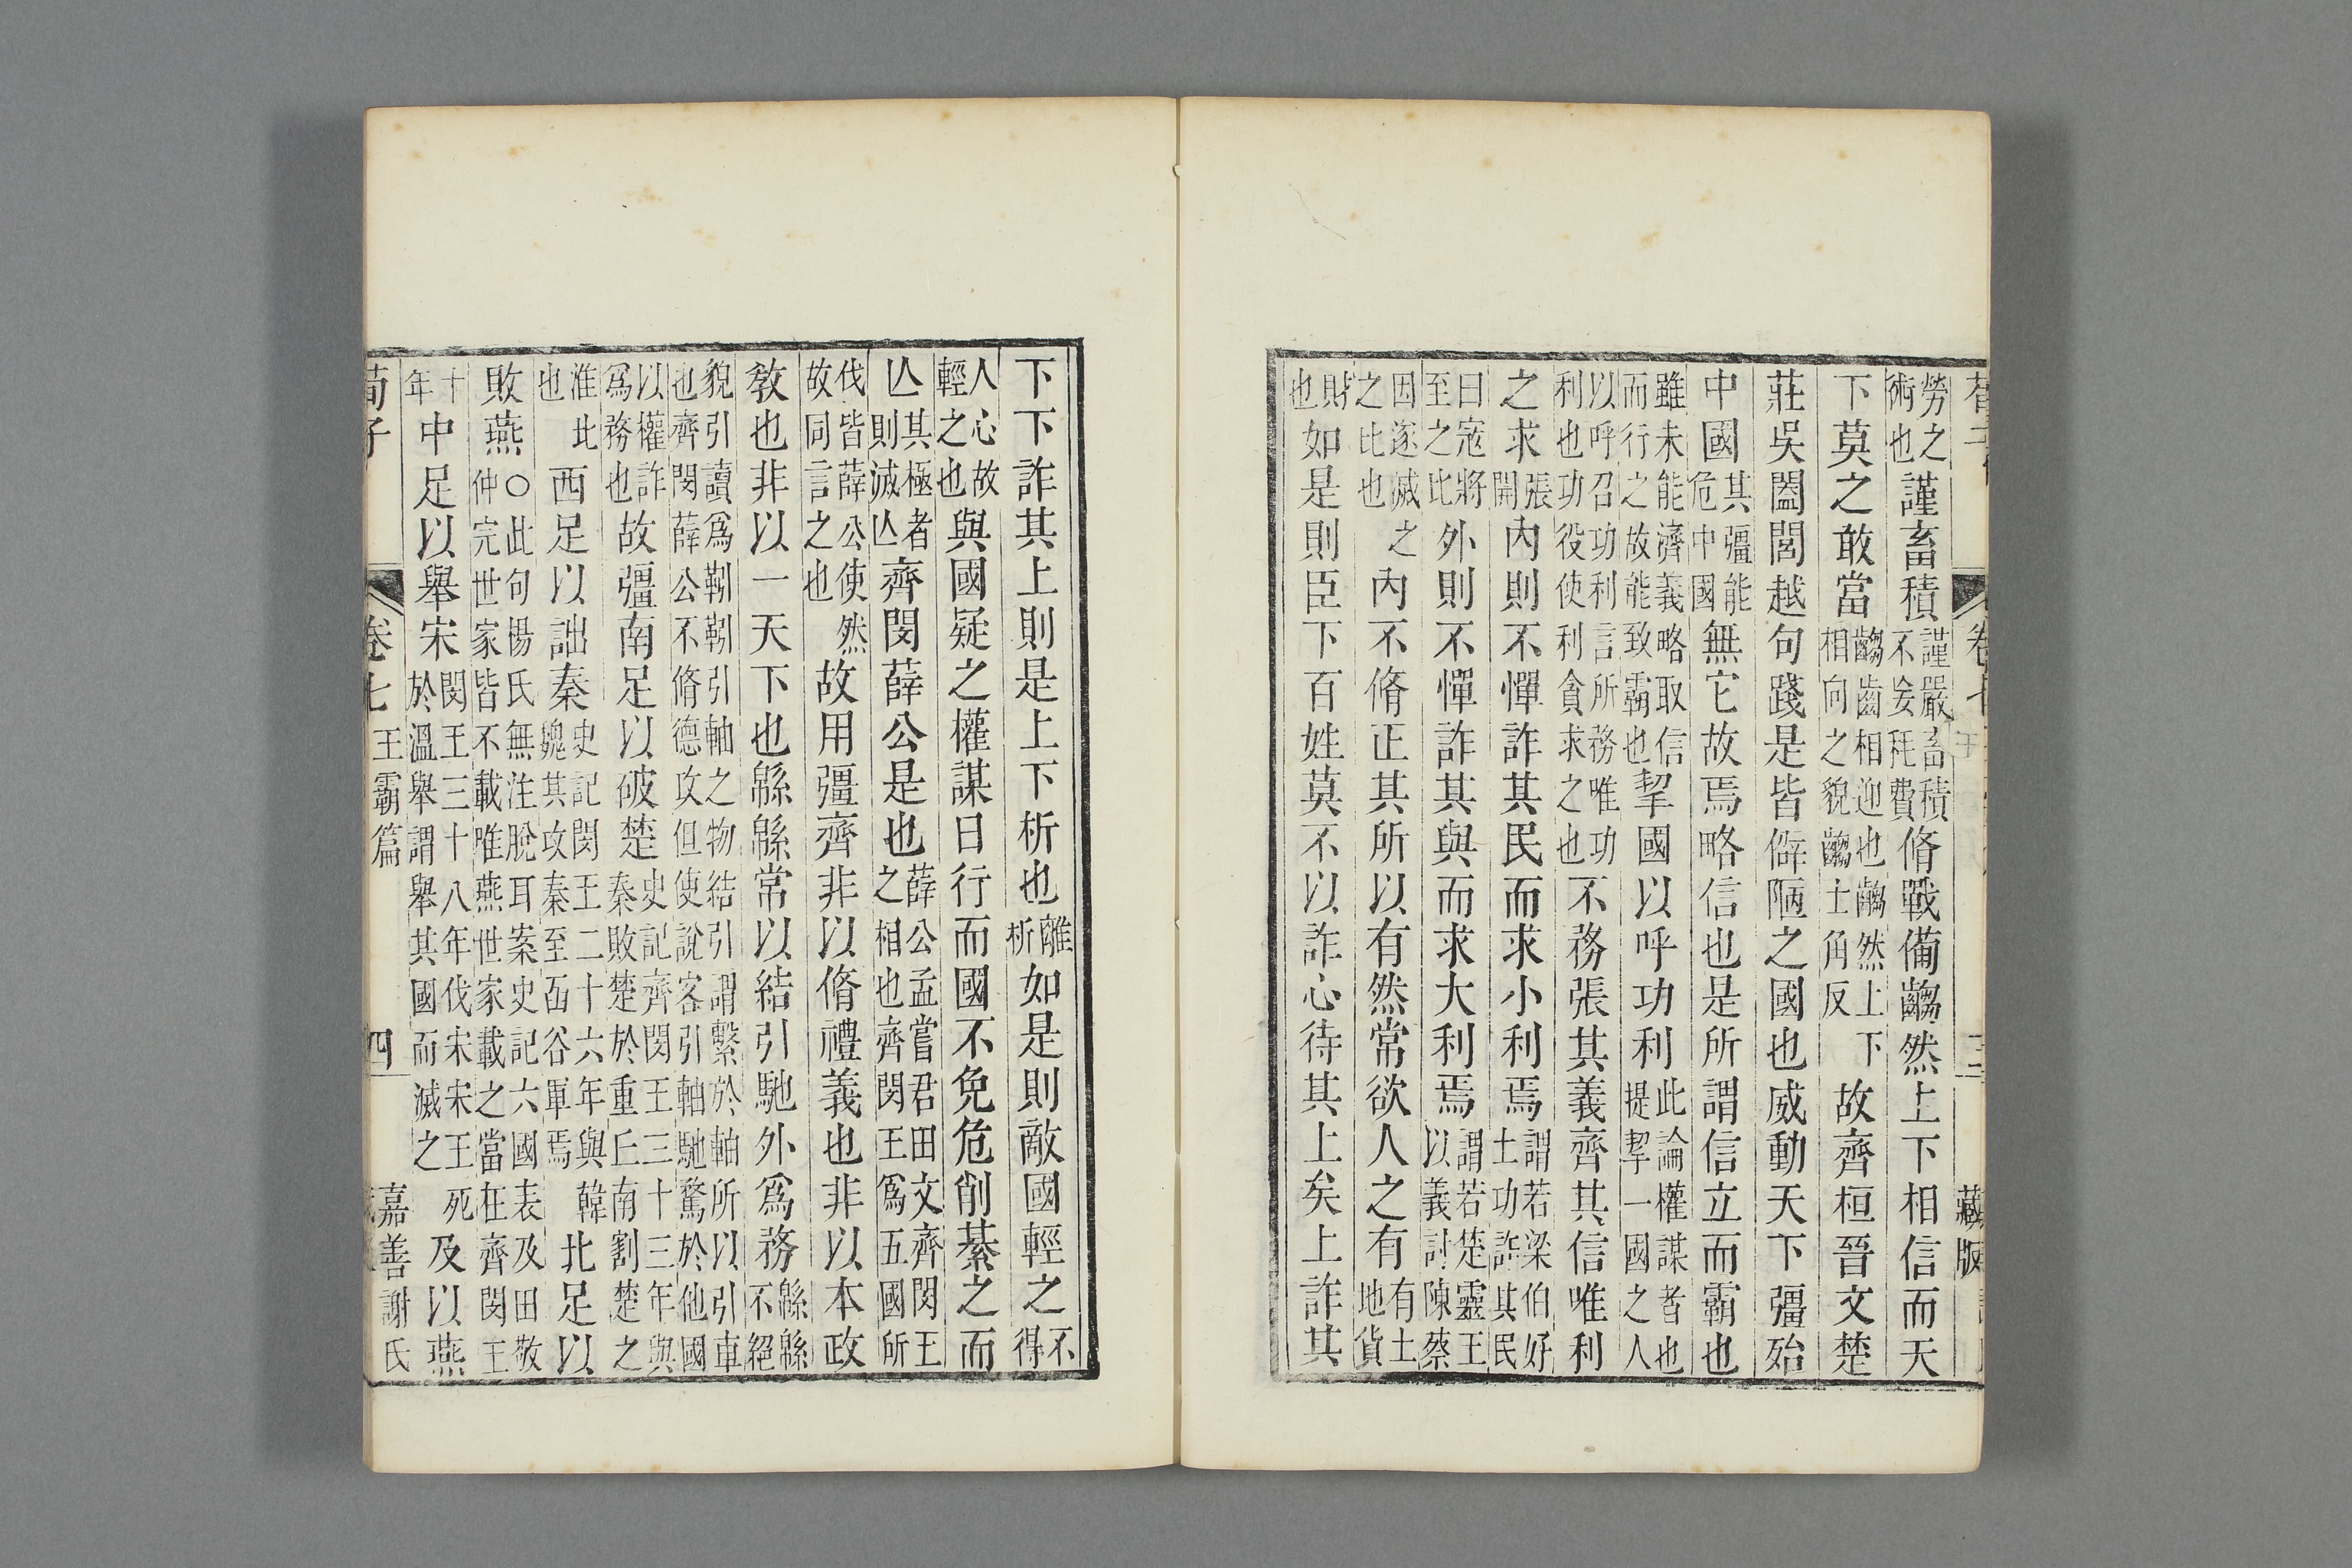 勞之術也謹畜積謹嚴畜積不妄耗費脩戰備齺然上下相信而天
下莫之敢當齺齒相迎也齺然上下相向之貌齺士角反故齊桓晉文楚
莊吳闔閭越句踐是皆僻陋之國也威動天下彊殆
中國其彊能危中國無它故焉略信也是所謂信立而霸也
雖未能濟義略取信而行之故能致霸也挈國以呼功利此論權謀者也提挈一國之人
以呼召功利言所務唯功利也功役使利貪求之也不務張其義齊其信唯利
之求張開內則不憚詐其民而求小利焉謂若梁伯好土功詐其民
曰寇將至之比外則不憚詐其與而求大利焉謂若楚靈王以義討陳蔡
因遂滅之之比也內不脩正其所以有然常欲人之有有土地貨
財也如是則臣下百姓莫不以詐心待其上矣上詐其
藏版
下下詐其上則是上下析也離析如是則敵國輕之不得
人心故輕之也與國疑之權謀日行而國不免危削綦之而
亾其極者則滅亾齊閔薛公是也薛公孟嘗君田文齊閔王之相也齊閔王爲五國所
伐皆薛公使然故同言之也故用彊齊非以脩禮義也非以本政
敎也非以一天下也緜緜常以結引馳外爲務緜緜不絕
貌引讀爲靷靷引軸之物結引謂繫於軸所以引車也齊閔薛公不脩德攻但使說客引軸馳騖於他國
以權詐爲務也故彊南足以破楚史記齊閔王三十三年與秦敗楚於重丘南割楚之
淮北也西足以詘秦史記閔王二十六年與韓魏共攻秦至函谷軍焉北足以
敗燕○此句楊氏無注脫耳案史記六國表及田敬仲完世家皆不載唯燕世家載之當在齊閔王
十年中足以舉宋閔王三十八年伐宋宋王死於溫舉謂舉其國而滅之及以燕
荀子 卷七 王霸篇 四 嘉善謝氏